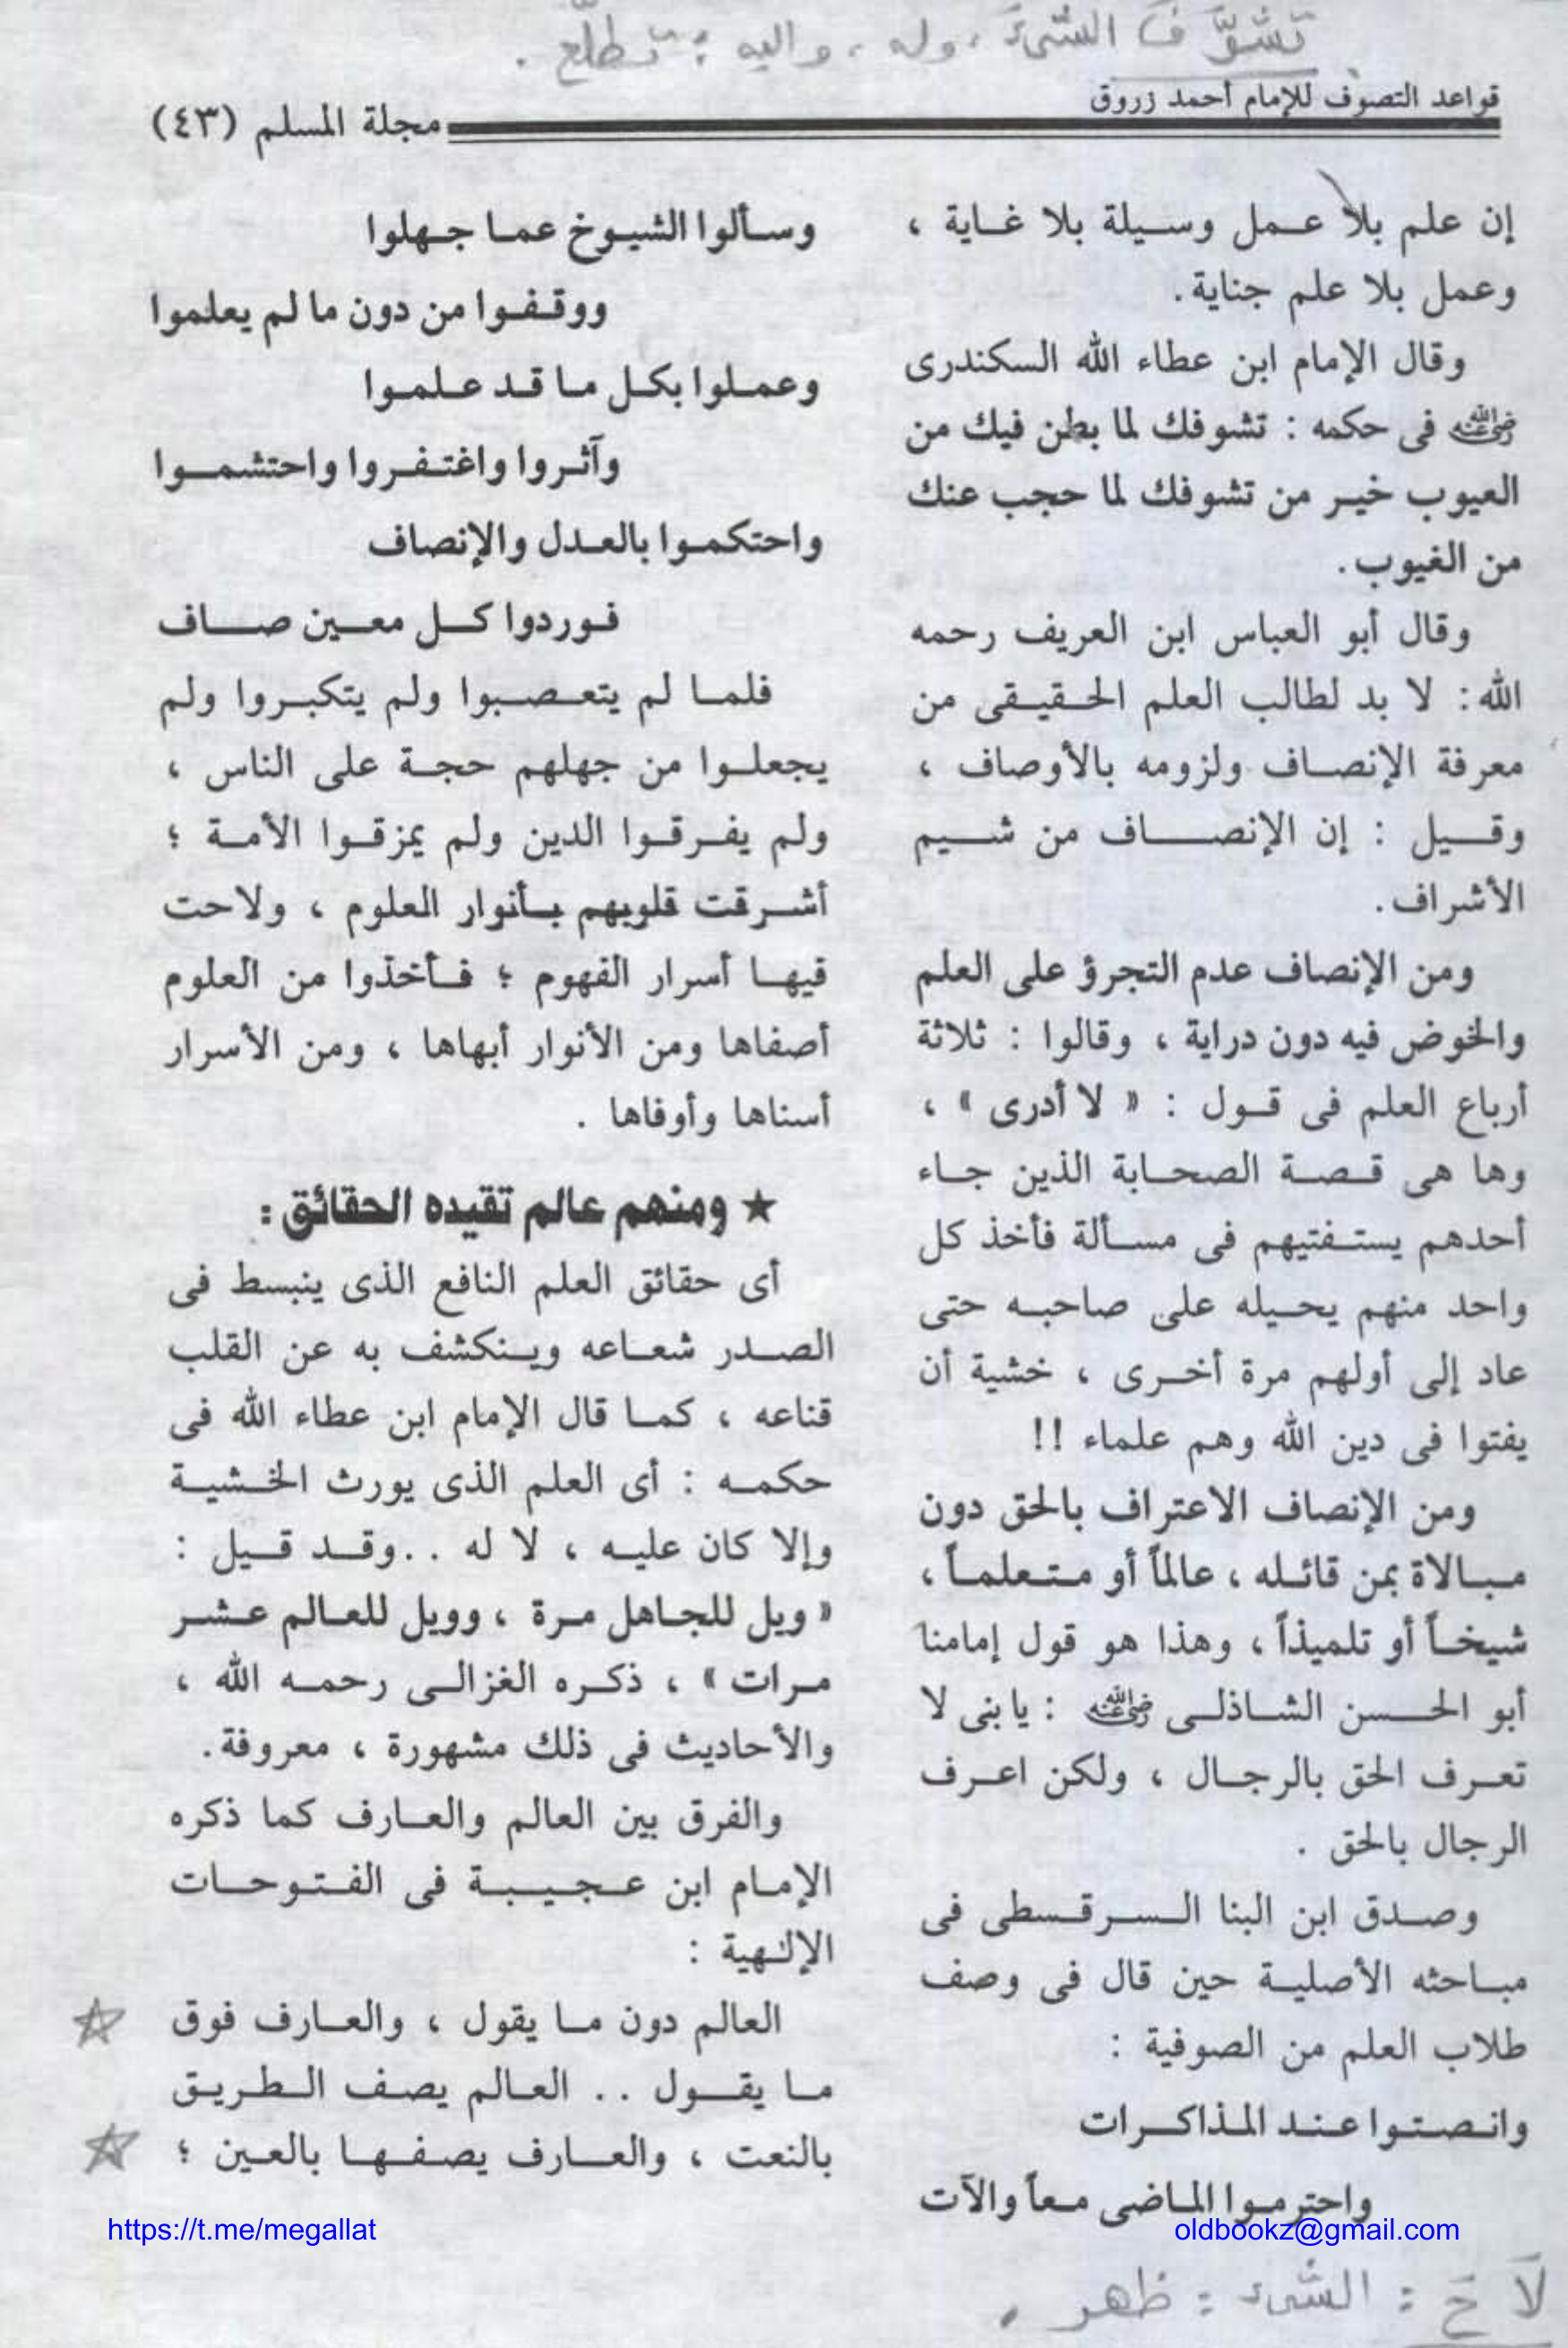 تَشَوَّفَ الشئَ ، وله ، واليه : تطلّع .
قواعد التصوف للإمام أحمد زروق
مجلة المسلم (٤٣)
إن علم بلا عمل وسيلة بلا غاية ،
وعمل بلا علم جناية .
وقال الإمام ابن عطاء الله السكندرى
رضي الله عنه فى حكمه : تشوفك لما بطن فيك من
العيوب خير من تشوفك لما حجب عنك
من الغيوب .
وقال أبو العباس ابن العريف رحمه
الله : لا بد لطالب العلم الحقيقى من
معرفة الإنصاف ولزومه بالأوصاف ،
وقيل : إن الإنصاف من شيم
الأشراف .
ومن الإنصاف عدم التجرؤ على العلم
والخوض فيه دون دراية ، وقالوا : ثلاثة
أرباع العلم فى قول : « لا أدرى » ،
وها هى قصة الصحابة الذين جاء
أحدهم يستفتيهم فى مسألة فأخذ كل
واحد منهم يحيله على صاحبه حتى
عاد إلى أولهم مرة أخرى ، خشية أن
يفتوا فى دين الله وهم علماء !!
ومن الإنصاف الاعتراف بالحق دون
مبالاة بمن قائله ، عالماً أو متعلماً ،
شيخاً أو تلميذاً ، وهذا هو قول إمامنا
أبو الحسن الشاذلى رضي الله عنه : يا بنى لا
تعرف الحق بالرجال ، ولكن اعرف
الرجال بالحق .
وصدق ابن البنا السرقسطى فى
مباحثه الأصلية حين قال فى وصف
طلاب العلم من الصوفية :
وانصتوا عند المذاكرات
واحترموا الماضى معاً والآت
وسألوا الشيوخ عما جهلوا
ووقفوا من دون ما لم يعلموا
وعملوا بكل ما قد علموا
وآثروا واغتفروا واحتشموا
واحتكموا بالعدل والإنصاف
فوردوا كل معين صاف
فلما لم يتعصبوا ولم يتكبروا ولم
يجعلوا من جهلهم حجة على الناس ،
ولم يفرقوا الدين ولم يمزقوا الأمة ؛
أشرقت قلوبهم بأنوار العلوم ، ولاحت
فيها أسرار الفهوم ؛ فأخذوا من العلوم
أصفاها ومن الأنوار أبهاها ، ومن الأسرار
أسناها وأوفاها .
★ ومنهم عالم تقيده الحقائق :
أى حقائق العلم النافع الذى ينبسط فى
الصدر شعاعه وينكشف به عن القلب
قناعه ، كما قال الإمام ابن عطاء الله فى
حكمه : أى العلم الذى يورث الخشية
وإلا كان عليه ، لا له .. وقد قيل :
« ويل للجاهل مرة ، وويل للعالم عشر
مرات » ، ذكره الغزالى رحمه الله ،
والأحاديث فى ذلك مشهورة ، معروفة .
والفرق بين العالم والعارف كما ذكره
الإمام ابن عجيبة فى الفتوحات
الإلهية :
العالم دون ما يقول ، والعارف فوق
ما يقول .. العالم يصف الطريق
بالنعت ، والعارف يصفها بالعين ؛
https://t.me/megallat
oldbookz@gmail.com
لاَحَ : الشئ : ظهر .